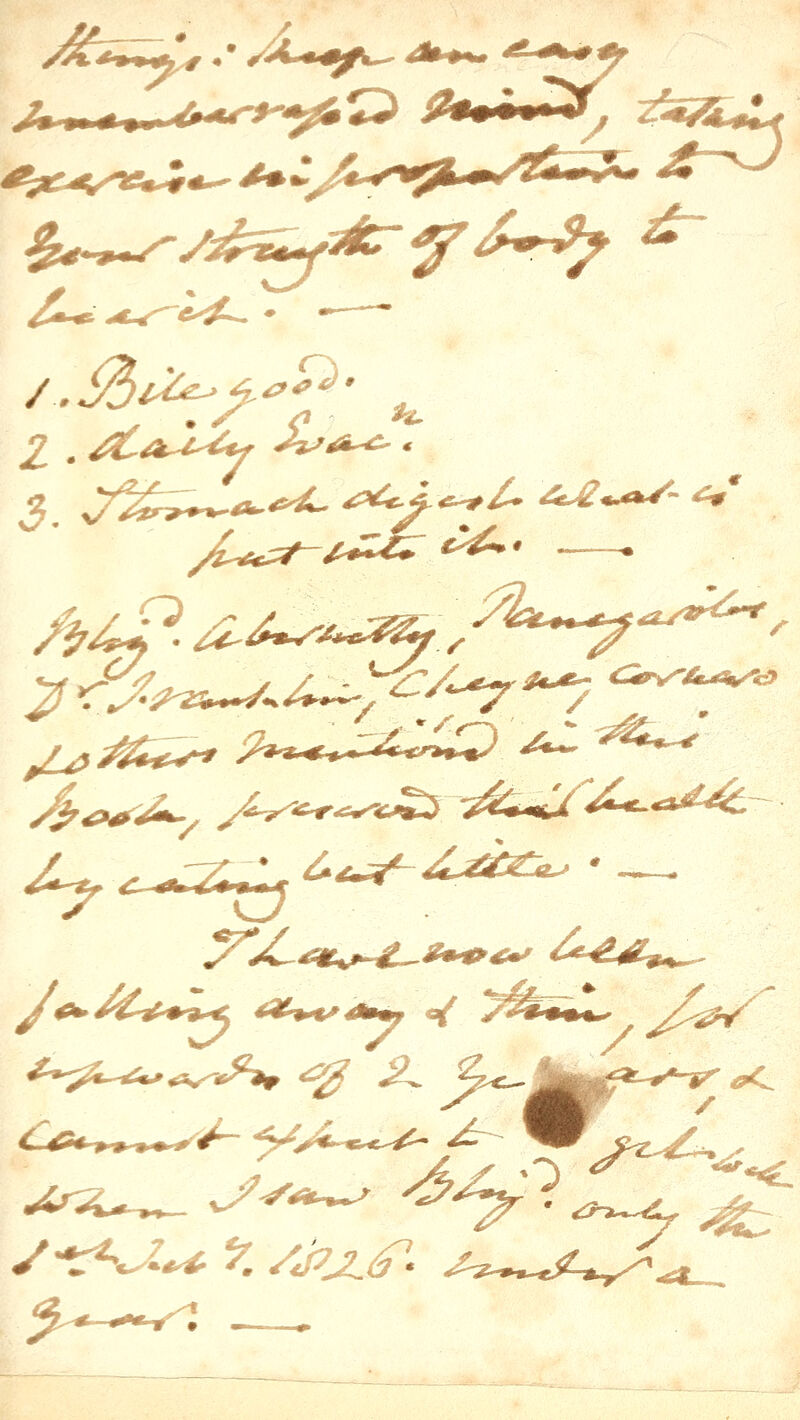 things: keep an easy
unembarrassed mind, taking
exercise in proportion to
your strength of body to
bear it. —
1. Bile good.
2. daily Evacⁿ.
3. Stomach digests what is
put into it. —
Abernethy,
Dr. Franklin, Cheyne, Cornaro
& others mention'd in this
Book, preserved their health
by eating but little. —
I have now been
falling away & thin, for
upwards of 2 years, &
cannot expect to get
when I saw only the
1st Feby. 1826. under a
year. —